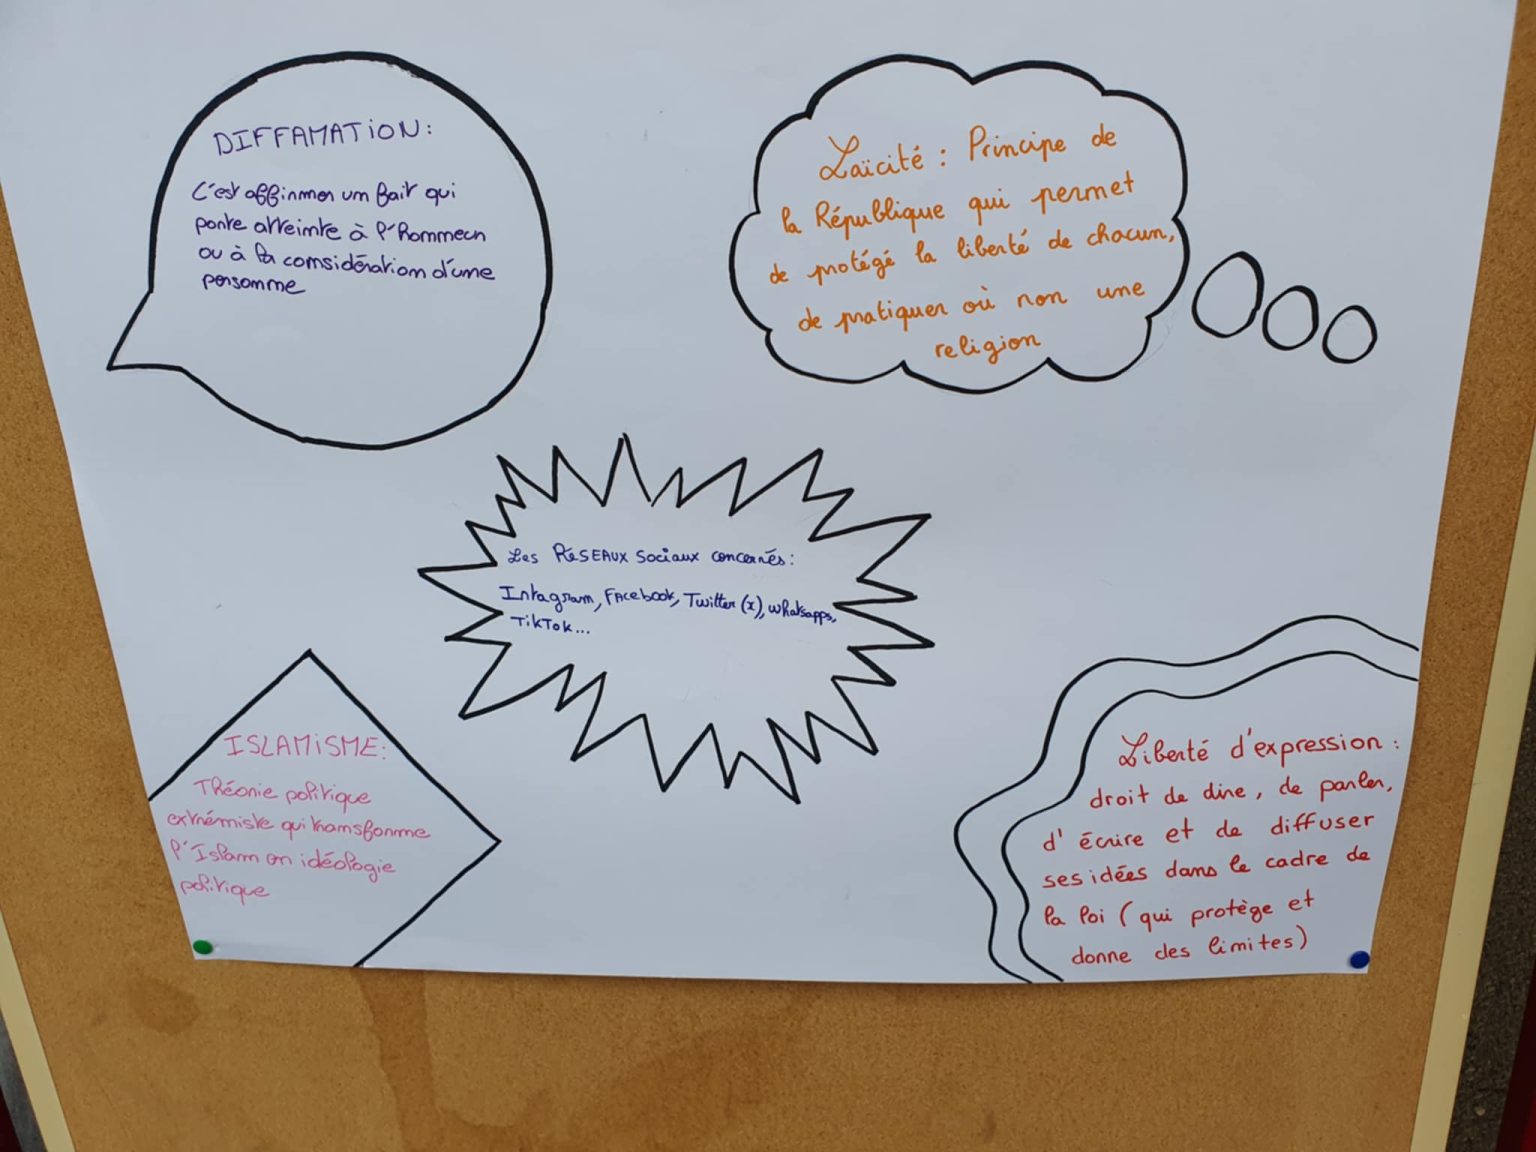 DIFFAMATION:
C'est affirmer un fait qui
porte atteinte à l'hommeur
ou à la considération d'une
personne
Laïcité : Principe de
la République qui permet
de protégé la liberté de chacun,
de pratiquer où non une
religion
Les RÉSEAUX Sociaux concernés :
Intagram, FAcebook, Twitter (x), whatsapps,
TikTok...
ISLAMISME:
Théorie politique
extrémiste qui transforme
l'Islam en idéologie
politique
Liberté d'expression :
droit de dire, de parler,
d'écrire et de diffuser
ses idées dans le cadre de
la loi (qui protège et
donne des limites)